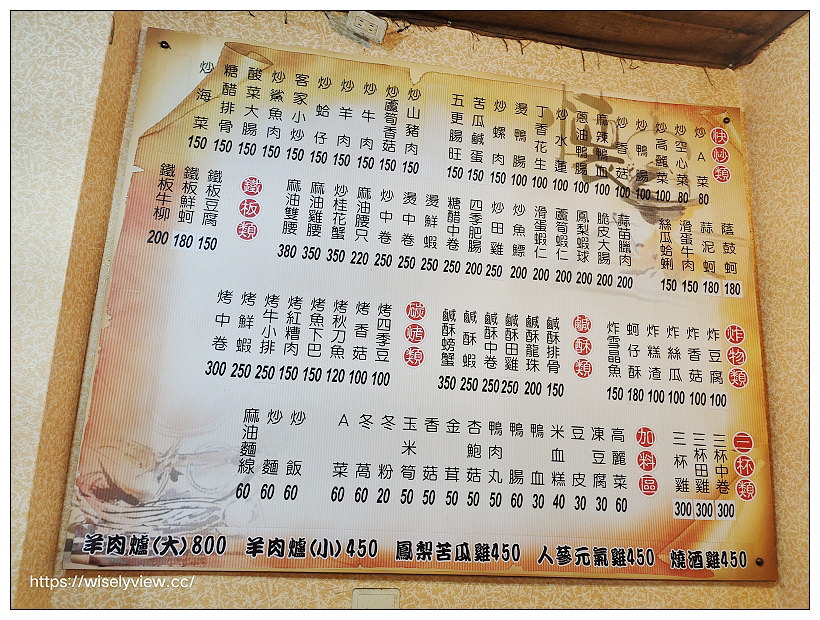 快炒類
炒A菜 80
炒空心菜 80
炒高麗菜 100
炒鴨腸 100
炒香菇 100
麻辣鴨血 100
蔥油鴨腸 100
炒水蓮 100
丁香花生 100
燙鴨腸 100
炒螺肉 150
苦瓜鹹蛋 150
五更腸旺 150
炒山豬肉 150
炒蘆筍香菇 150
炒牛肉 150
炒羊肉 150
炒蛤仔 150
客家小炒 150
炒鯊魚肉 150
酸菜大腸 150
糖醋排骨 150
炒海菜 150
蔭鼓蚵 180
蒜泥蚵 180
滑蛋牛肉 150
絲瓜蛤蜊 150
蒜苗臘肉 200
脆皮大腸 200
鳳梨蝦球 200
蘆筍蝦仁 200
滑蛋蝦仁 200
炒魚鰾 200
炒田雞 200
四季肥腸 200
糖醋中卷 250
燙鮮蝦 250
燙中卷 250
炒中卷 250
麻油腰只 220
炒桂花蟹 350
麻油雞腰 350
麻油雙腰 380
鐵板類
鐵板豆腐 150
鐵板鮮蚵 180
鐵板牛柳 200
炸物類
炸豆腐 100
炸香菇 100
炸絲瓜 100
炸糕渣 100
蚵仔酥 180
炸雪晶魚 150
鹹酥類
鹹酥排骨 150
鹹酥龍珠 200
鹹酥田雞 250
鹹酥中卷 250
鹹酥蝦 250
鹹酥螃蟹 350
碳烤類
烤四季豆 100
烤香菇 100
烤秋刀魚 120
烤魚下巴 150
烤紅糟肉 150
烤牛小排 250
烤鮮蝦 250
烤中卷 300
三杯類
三杯中卷 300
三杯田雞 300
三杯雞 300
加料區
高麗菜 60
凍豆腐 30
豆皮 30
米血糕 40
鴨血 30
鴨腸 60
鴨肉丸 50
杏鮑菇 50
金茸菇 50
香菇 50
玉米筍 50
冬粉 20
冬萵 60
A菜 60
炒飯 60
炒麵 60
麻油麵線 60
羊肉爐(大)800 羊肉爐(小)450 鳳梨苦瓜雞450 人蔘元氣雞450 燒酒雞450
https://wiselyview.cc/